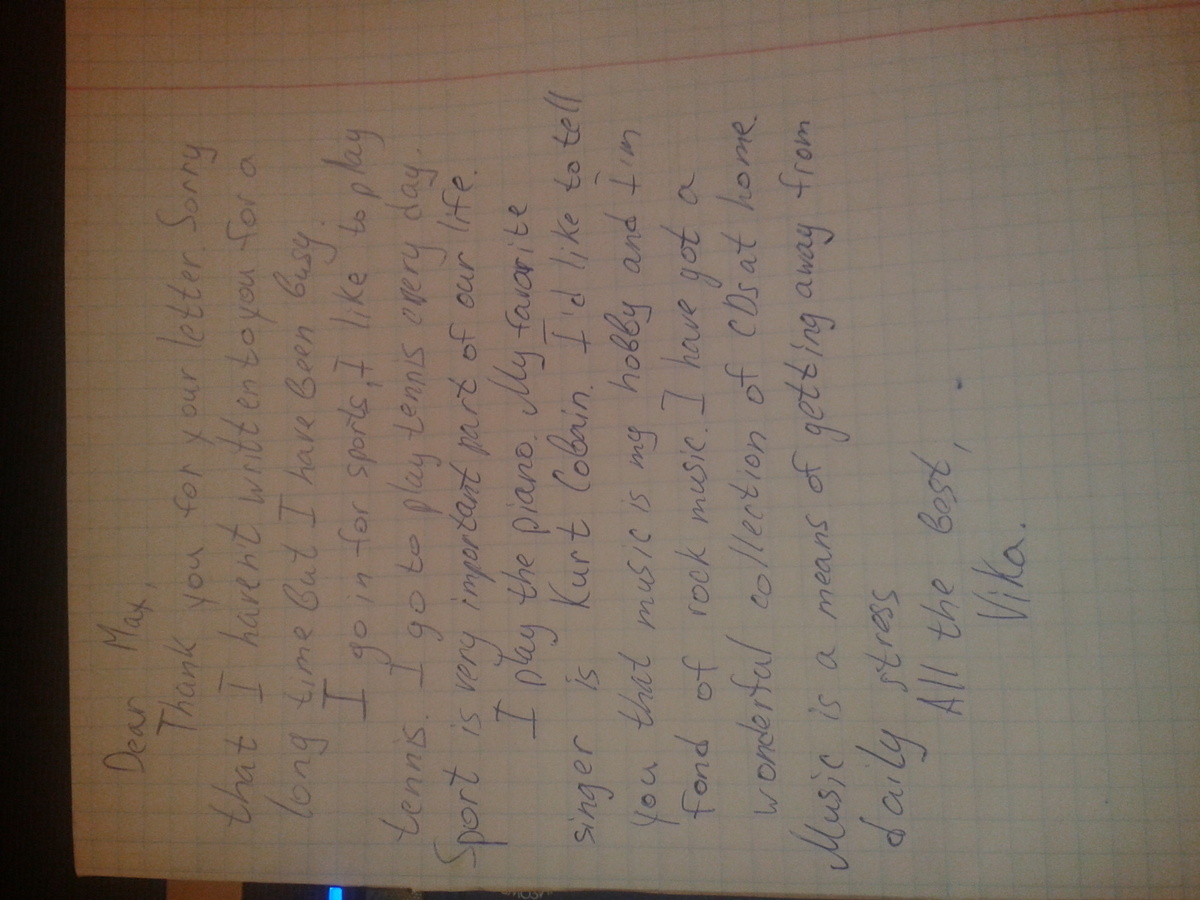 Dear Max,
Thank you for your letter. Sorry
that I havent written to you for a
long time But I have Been busy.
I go in for sports, I like to play
tennis. I go to play tennis every day.
Sport is very important part of our life.
I play the piano. My favorite
singer is Kurt Cobain. I'd like to tell
you that music is my hobby and I'm
fond of rock music. I have got a
wonderful collection of CDs at home.
Music is a means of getting away from
daily stress
All the Best,
Vika.